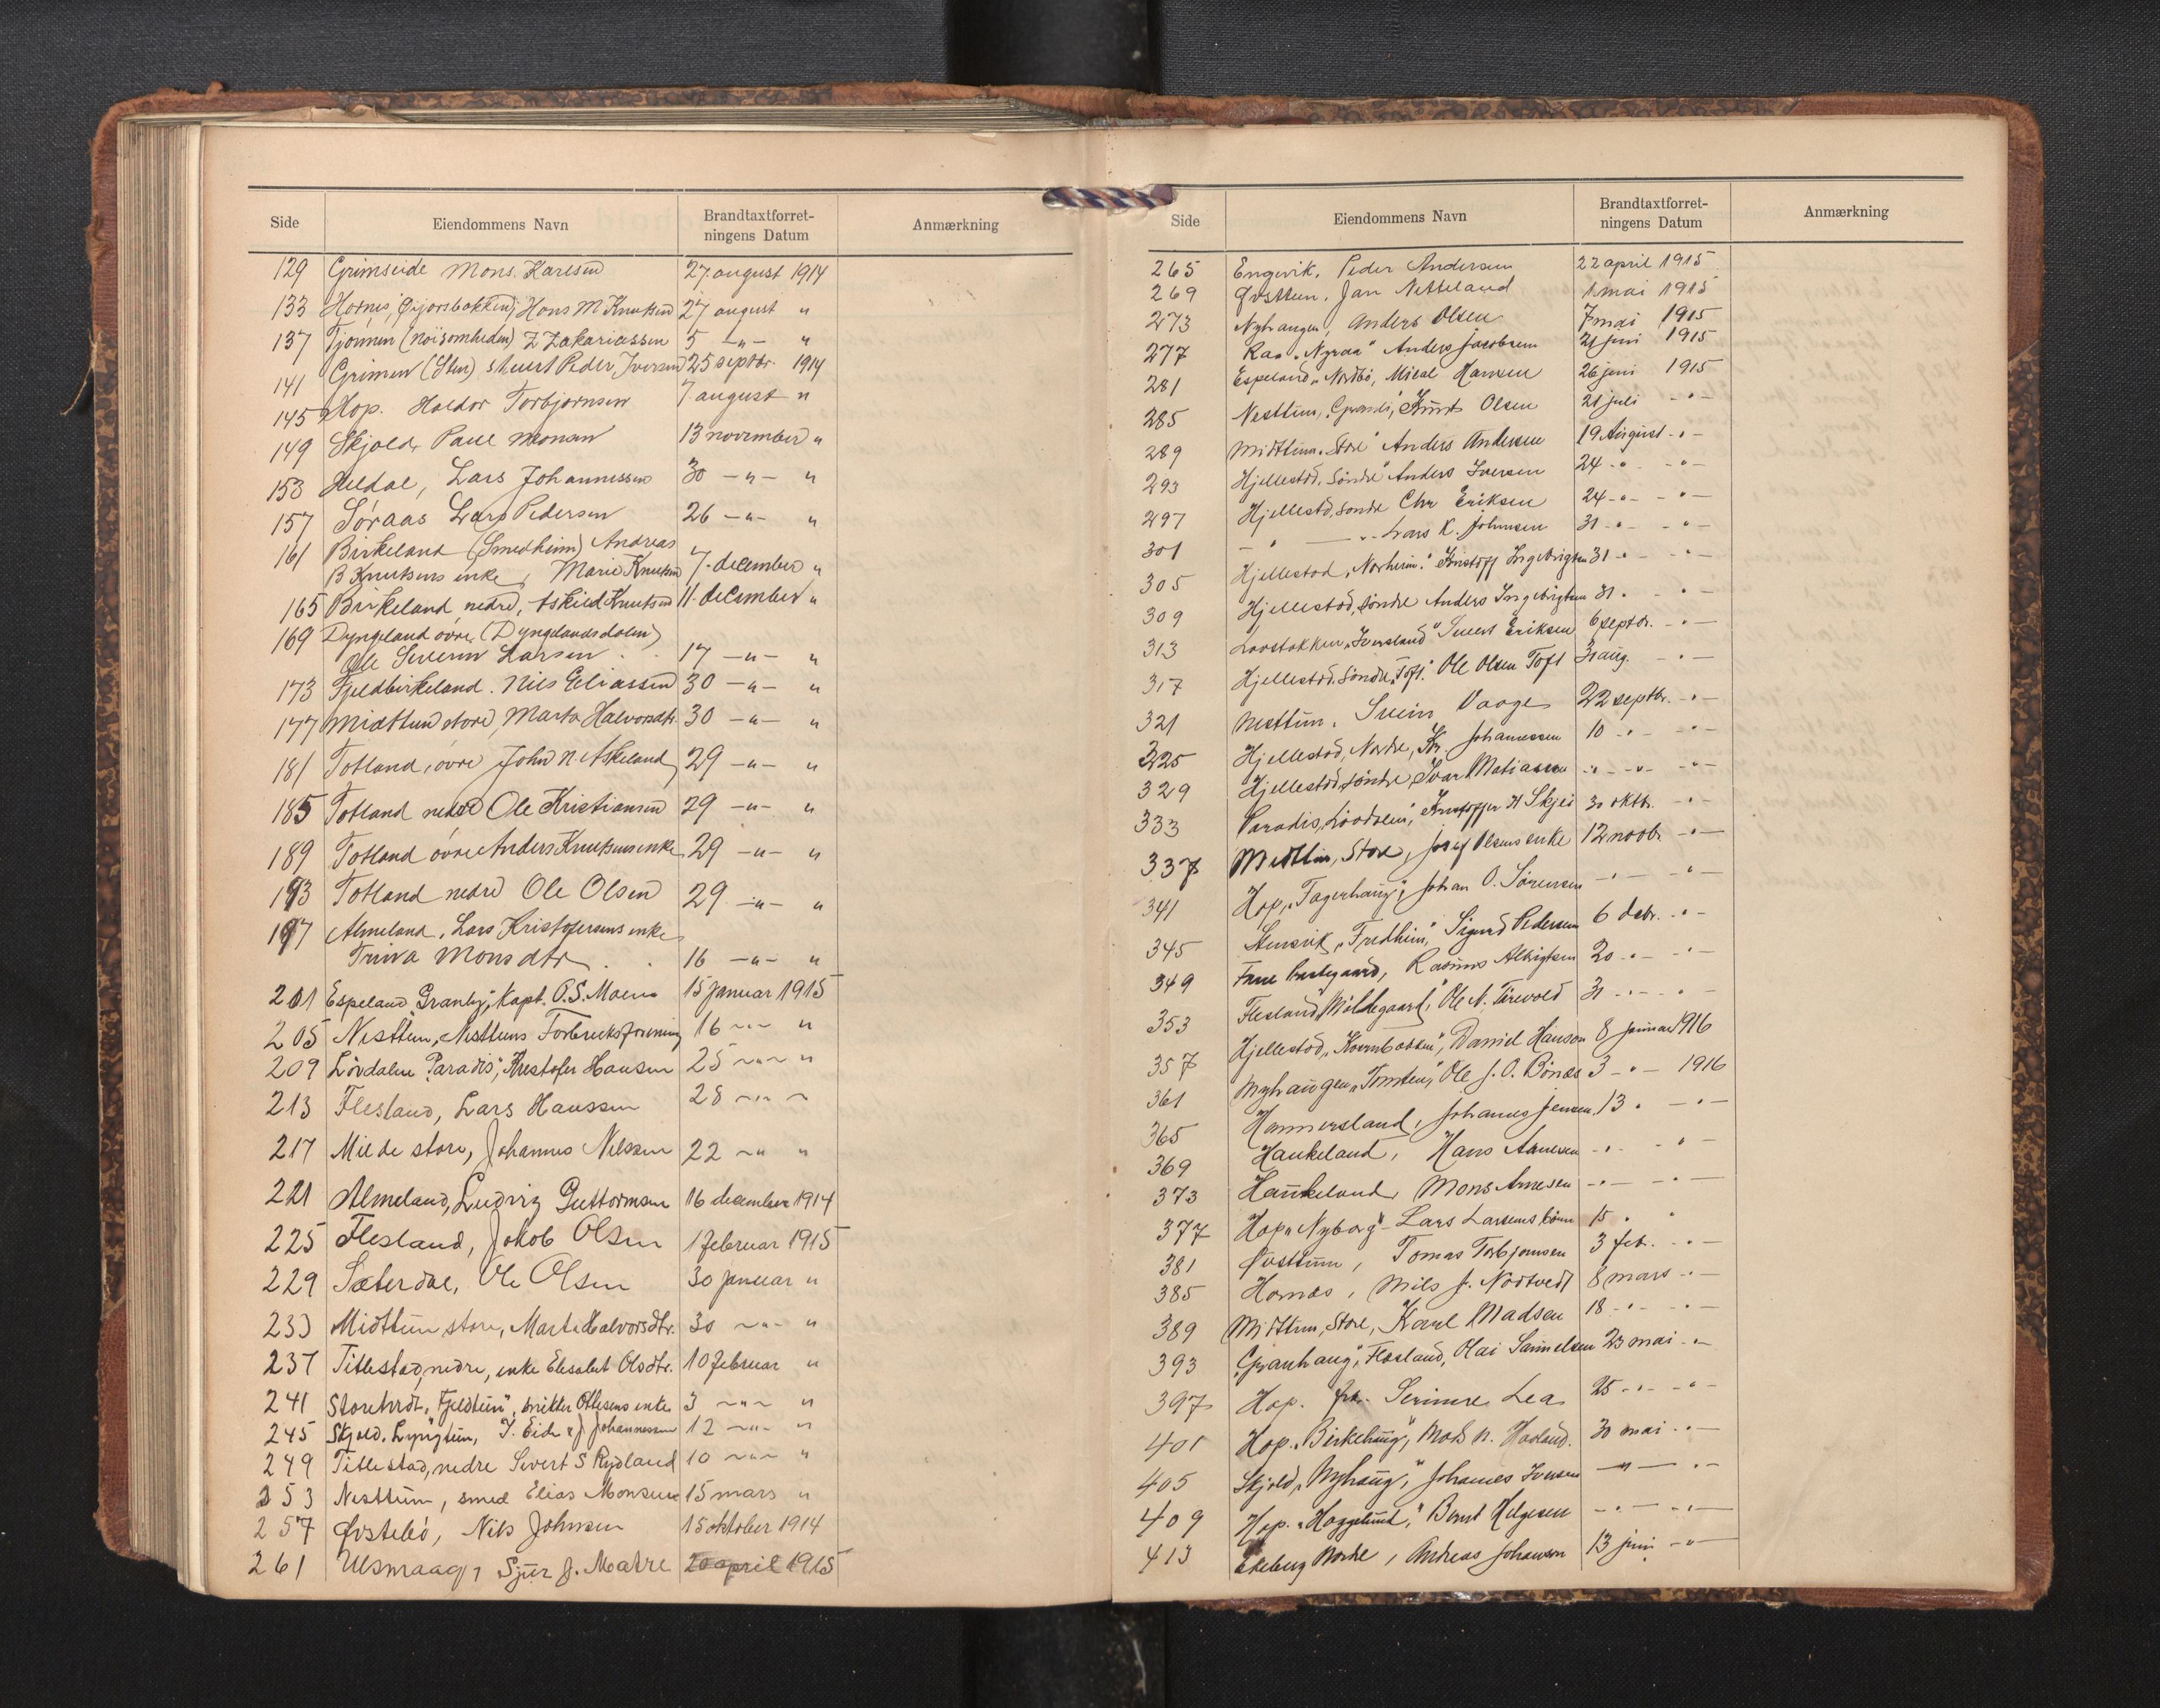 Side Eiendommens Navn Brandtaxtforret-ningens Datum Anmærkning
129 Grimseide Mons. Karlsen 27. august 1914
133 Hornes, Hans M Knutsen 27 august "
137 Tjonnen (Nöisomheden) Z Zakariassen 5 -"- "
141 Grimen (Sten) Peder Iversen 25 septbr. 1914
145 Hop. Haldor Torbjørnsen 7 august "
149 Skjold, Paul Monsen 13 november "
153 Heldal, Lars Johannessen 30 -"- "
157 Søraas Lars Pedersen 26 -"- "
161 Birkeland (Smedheim) Andreas
B Knutsens enke, Marie Knutsen 7. december "
165 Birkeland nedre, Askild Knutsen 11. december "
169 Dyngeland övre, (Dyngelandsdalen)
Ole Severin Larsen . . 17 -"- "
173 Fjeldbirkeland. Nils Eliassen 30 -"- "
177 Midttun store, Marta Halvorsdtr. 30 -"- "
181 Totland, övre John N. Askeland 29 -"- "
185 Totland nedre Ole Kristiansen 29 -"- "
189 Totland övre Anders Knutsens enke 29 -"- "
193 Totland nedre Ole Olsen 29 -"- "
197 Almeland, Lars Kristofersens enke
Triva Monsdtr . . 16 -"- "
201 Espeland "Granly", Kapt. O.S. Moen 15 januar 1915
205 Nesttun, Nesttuns Forbruksforening 16 -"- "
209 Lövdalen "Paradis", Kristofer Hansen 25 -"- "
213 Flesland, Lars Hanssen 28 -"-
217 Milde store, Johannes Nilssen 22 -" "
221 Almeland, Ludvig Guttormsen 16 december 1914
225 Flesland, Jakob Olsen 1 februar 1915
229 Sæterdal, Ole Olsen 30 januar "
233 Midttun store, Marta Halvorsdtr. 30 -"- "
237 Titlestad, nedre, enke Elisabet Olsdtr. 10 februar "
241 Storetvedt, "Fjeldtun", Ottesens enke 3 -"- "
245 Skjold, Lyngtun, T. Eide & J Johannessen 12 -"- "
249 Titlestad, nedre Sivert S Rydland 10 -"- "
253 Nesttun, smed Elias Monsen 15 mars "
257 Øvstebö, Nils Johnsen 15 oktober 1914
261 Ulsmaag, Sjur J. Matre 20 april 1915
Side Eiendommens Navn Brandtaxtforret-ningens Datum Anmærkning
265 Engevik, Peder Andersen 22 april 1915
269 Øvsttun, Jan Netteland 1. mai 1915
273 Nyhaugen, Anders Olsen 7 mai 1915
277 Raa "Nyraa" Anders Jacobsen 21 juni 1915
281 Espeland "Nordbö, Mikal Hansen 26 juni 1915
285 Nesttun, Knut Olsen 21 juli -"-
289 Midttun "Store" Anders Andersen 19 August -"-
293 Hjellestad, Söndre" Anders Iversen 24 -"- -"-
297 Hjellestad, söndre Chr Eriksen 24 -"- -"-
301 - " - Lars K. Johnsen 31 -"- -"-
305 Hjellestad "Norheim." Kristoff Ingebrigtsen 31 -"- -"-
309 Hjellestad, söndre Anders Ingebrigtsen 31 . -"-
313 Løvstakken "Iversland" Sivert Eriksen 6 septbr. -"-
317 Hjellestad. Söndre, "Toft." Ole Olsen Toft 31 aug. -"-
321 Nesttun. Svein Vaage 22 septbr. -"-
325 Hjellestad, Nordre, Kr. Johanessen 10 -"- -"-
329 Hjellestad, söndre, Ivar Matiassen -"- -"- -"-
333 Paradis, Kristoffer H Skjei 30 oktb. -"-
337 Midttun, Store, Josef Olsens enke 12 novbr. -"-
341 Hop, "Fagerhaug", Johan O. Sørensen -"- -"-
345 Stensvik "Fredheim", Sigurd Pedersen 6 debr. -"-
349 Fane Prestegaard, Rasmus Albrigtsen 20 -"- -"-
353 Flesland "Mildegaard", Ole N. Tirevold 31 -"- -"-
357 Hjellestad, Daniel Hanson 8 januar 1916
361 Myhaugen, "Tomten", Ole J. O. Bönæs 3 -"- 1916
365 Hammersland, Johannes Jensen, 13 . -"-
369 Haukeland, Hans Arnesen -"- -"-
373 Haukeland, Mons Arnesen -"- -"-
377 Hop "Nyborg" Lars Larsens 15 . "
381 Øvsttun, Tomas Torbjørnsen 3 feb. -"-
385 Hornæs, Nils J. Nödtvedt 8 mars -"-
389 Midttun, Store, Karl Madsen 18 -"- -"-
393 "Granhaug", Flesland, Olai Samuelsen 23 mai -"-
397 Hop. frk. Lea 25 -"- -"-
401 Hop. "Birkehaug", Mads N. Hauland. 30 mai -"-
405 Skjold, "Nyhaug", Johannes Iversen -"- -"-
409 Hop. "Haggelund," Bernt Helgesen -"- -"-
413 Ekeberg Nordre, Andreas Johanson 13 juni -"-